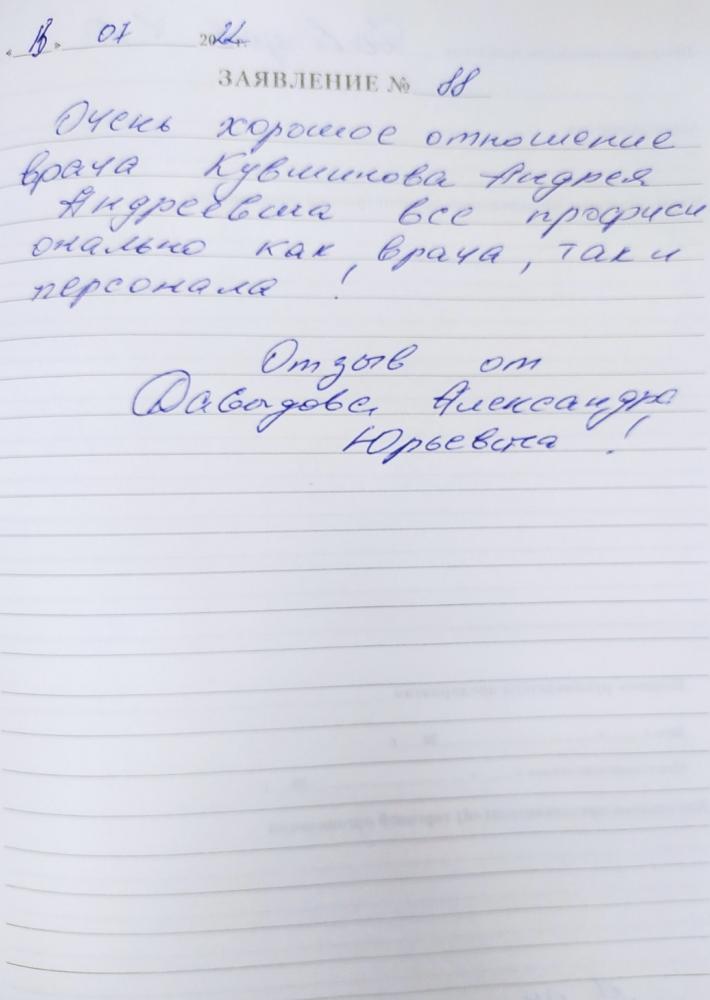 « 13 » 07 2022 г.
ЗАЯВЛЕНИЕ № 88
Очень хорошое отношение
врача Кувшинова Андрея
Андреевича все профиси
онально как врача, так и
персонала !
Отзыв от
Давыдова Александра
Юрьевича !